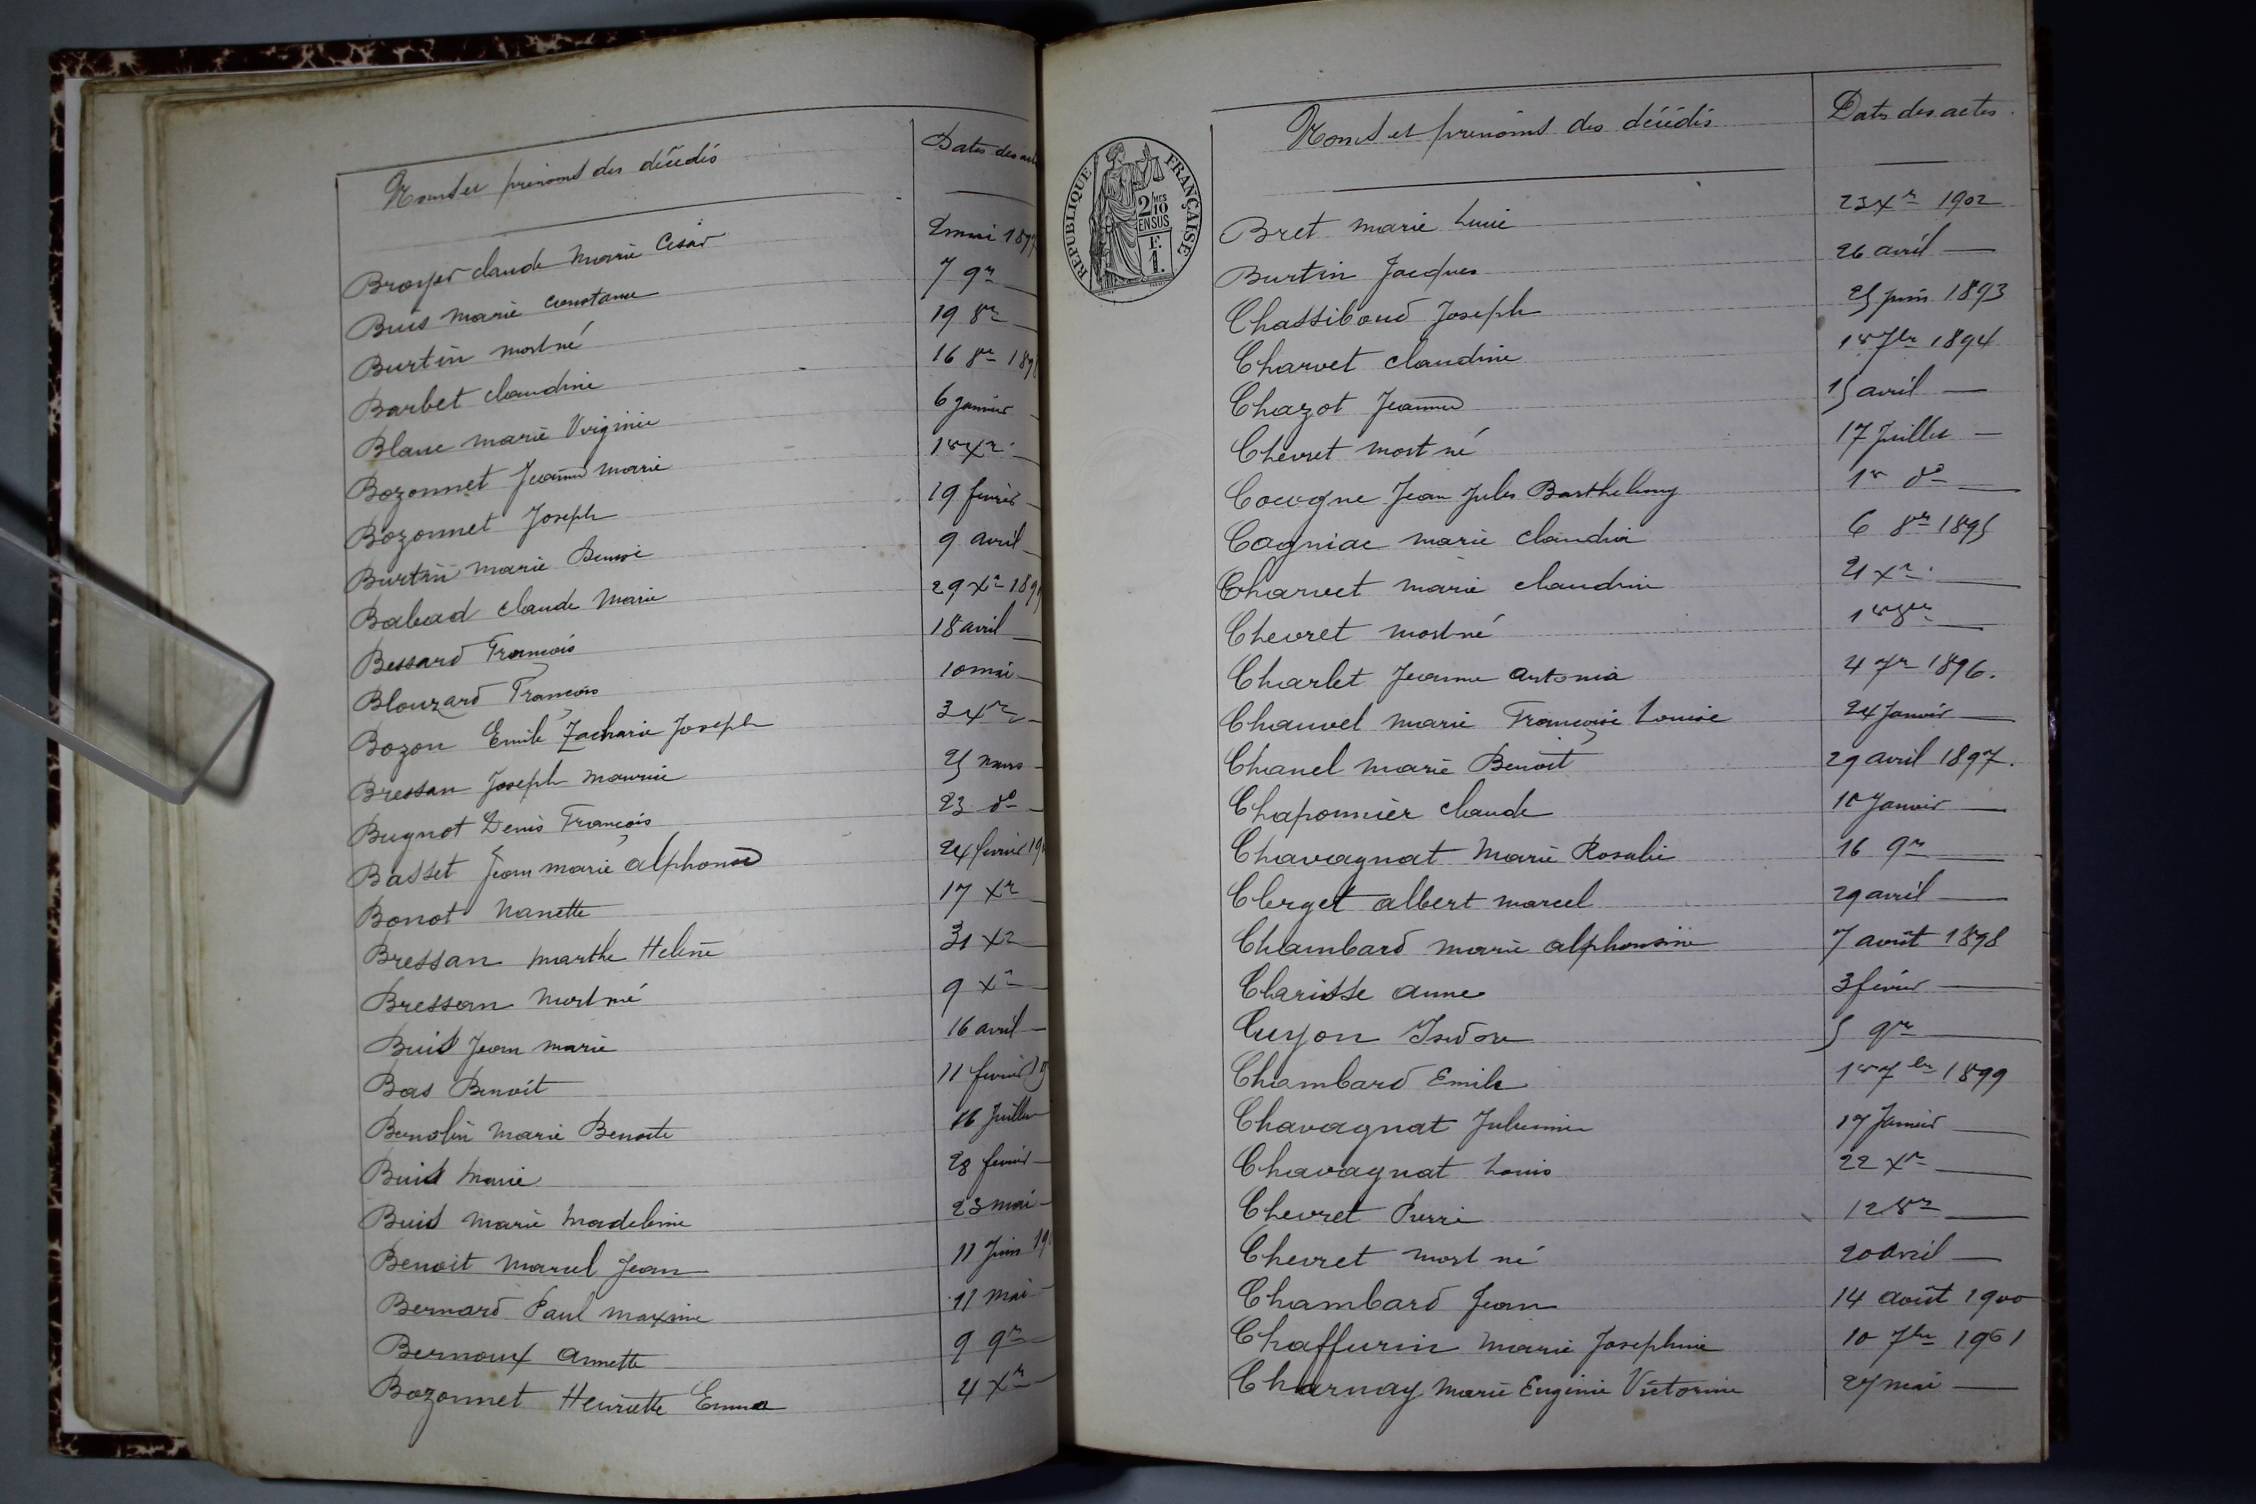 Noms et prénoms des décédés Dates des
Broyer claude Marie César 2 mai 189
Buis Marie Constance 7 9re —
Burtin mort né 19 8re —
Barbet claudine 16 8re 189
Blanc marie Virginie 6 janvier —
Bozonnet Jeanne marie 1er Xre —
Bozonnet Joseph 19 février —
Burtin marie 9 avril —
Babad claude Marie 29 Xre 189
Bessard François 18 avril —
Blouzard François 10 mai —
Bozon Emile Zacharie Joseph 3 Xre —
Bressan Joseph maurice 25 mars —
Bugnot Denis François 23 do —
Basset Jean marie alphonse 24 février 19
Bonot Nanette 17 Xre —
Bressan Marthe Helène 31 Xre —
Bressan Mort né 9 Xre —
Buis Jean marie 16 avril —
Bas Benoit 11 février 19
Marie Benoite 16 Juillet —
Buis Marie 28 février —
Buis Marie Madeleine 23 mai —
Benoit Marcel Jean 11 Juin 19
Bernard Paul maxime 11 mai —
Bernoux annette 9 9re —
Bozonnet Henriette Emma 4 Xre —
REPUBLIQUE FRANÇAISE
2/10 MES
EN SUS
F.
1.
Noms et prénoms des décédés Dates des actes.
Bret marie Lucie 23 Xre 1902
Burtin Jacques 26 avril —
Chassiboud Joseph 25 juin 1893
Charvet claudine 1er 7bre 1894
Chazot Jeanne 15 avril —
Chevret mort né 17 Juillet —
Cocogne Jean Jules Barthelemy 1er do —
Cagniac marie Claudia 6 8re 1895
Charvet marie claudine 21 Xre —
Chevret mort né 1er —
Charlet Jeanne antonia 4 7re 1896.
Chauvel marie Françoise Louise 24 Janvier —
Chanel marie Benoit 29 avril 1897.
Chaponnier claude 10 Janvier —
Chavagnat Marie Rosalie 16 9re —
Clerget albert marcel 29 avril —
Chambard marie alphonsine 7 août 1898
Clarisse anne 3 février —
Cuyon Isidore 5 9re —
Chambard Emile 1er 7bre 1899
Chavagnat Julienne 17 Janvier —
Chavagnat Louis 22 Xre —
Chevret Pierre 12 8re —
Chevret mort né 20 avril —
Chambard Jean 14 août 1900
Chaffurin Marie Josephine 10 7bre 1901
Charnay Marie Eugénie Victorine 27 mai —